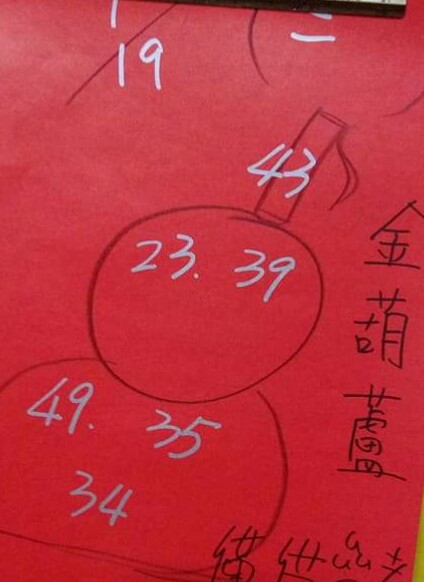 19
43
23. 39
49. 35
34
金葫蘆